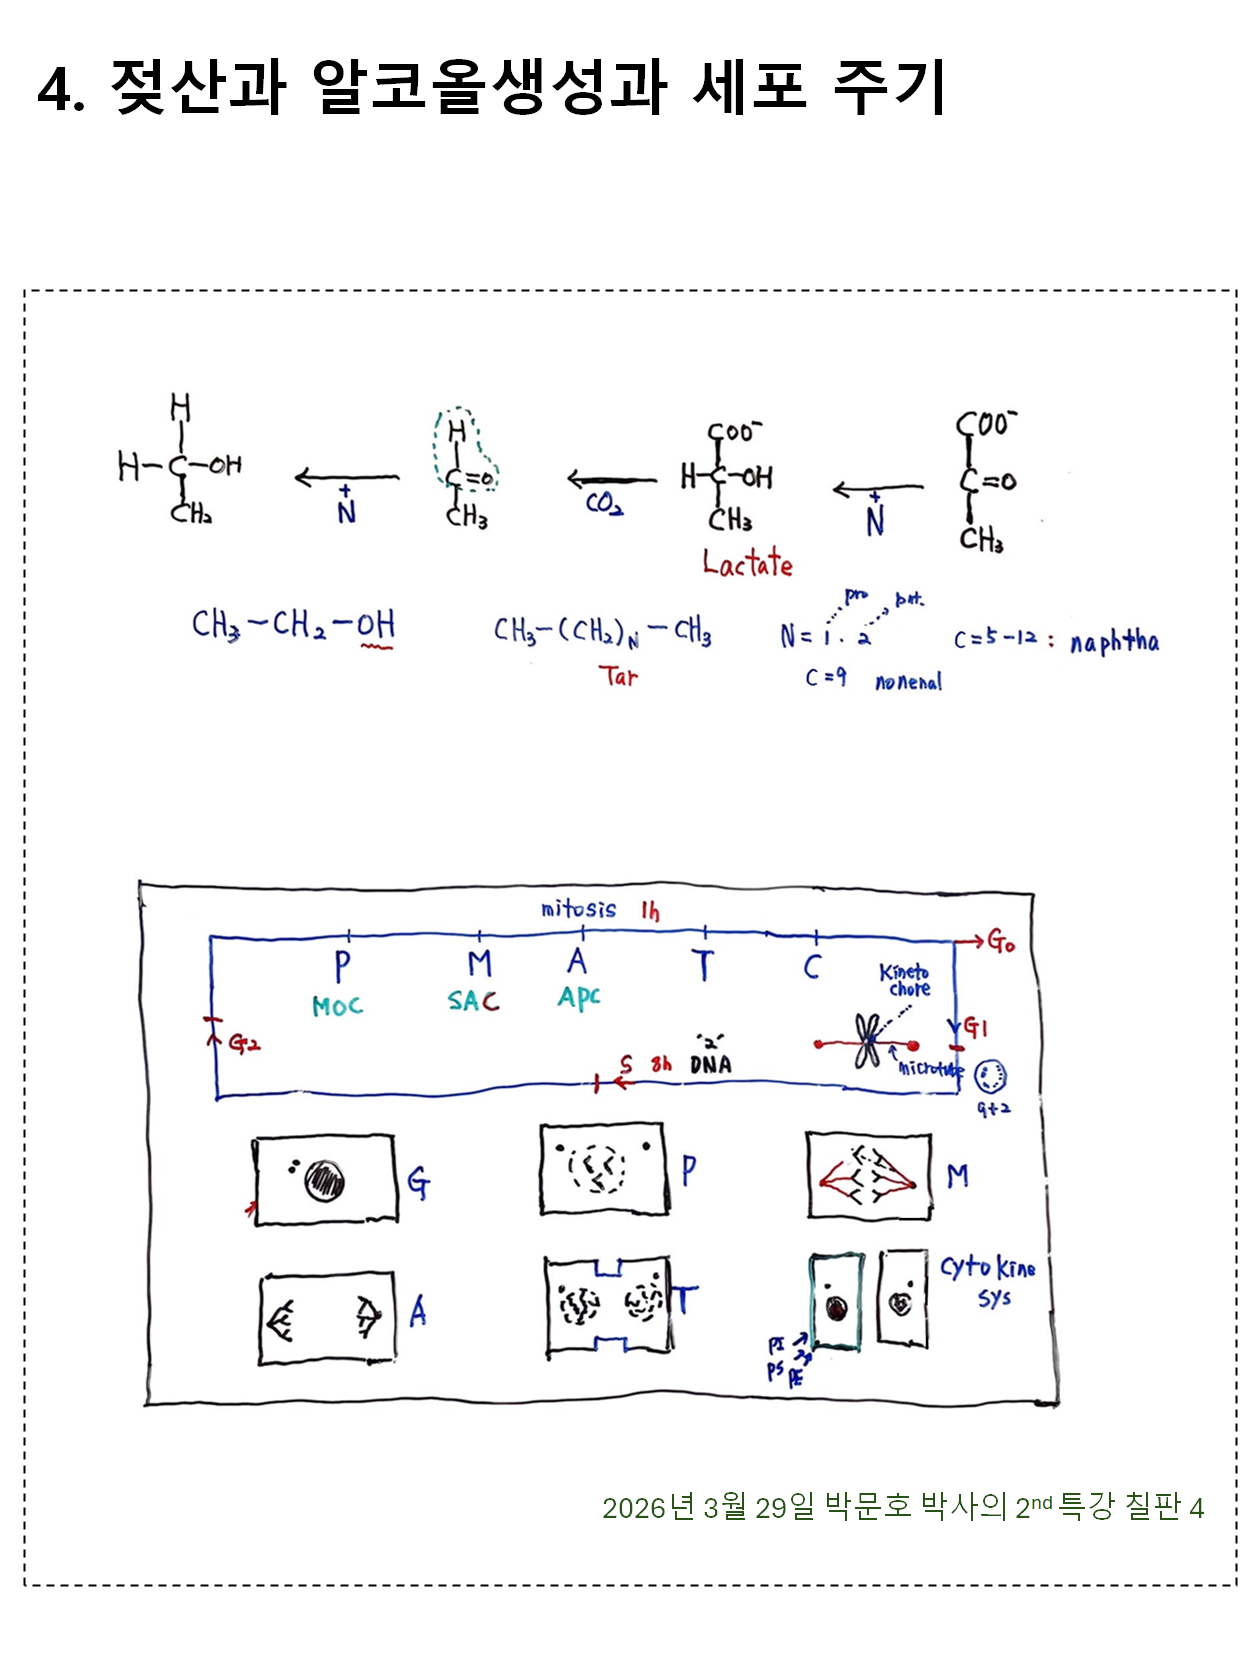 4. 젖산과 알코올생성과 세포 주기
H
H-C-OH
CH₂
← N⁺
H
C=O
CH₃
← CO₂
COO⁻
H-C-OH
CH₃
Lactate
← N⁺
COO⁻
C=O
CH₃
CH₃-CH₂-OH
CH₃-(CH₂)N-CH₃
Tar
N=1.2
pro
but.
C=9 nonenal
C=5-12: naphtha
mitosis 1h
P M A T C
MOC SAC APC
G₀
Kineto
chore
G1
G2
S 8h "2" DNA
microtube
9+2
G
P
M
A
T
Cytokine
sys
PI
PS
PE
2026년 3월 29일 박문호 박사의 2nd 특강 칠판 4